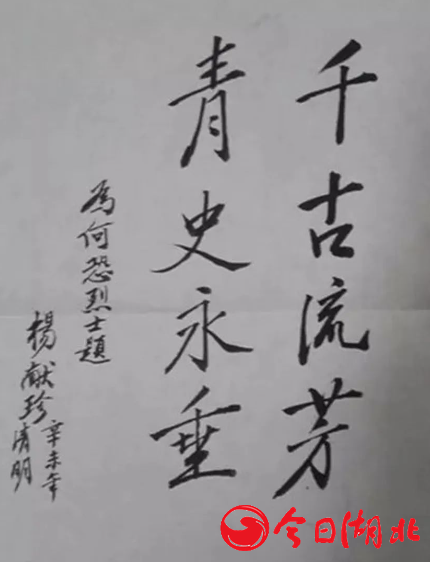 千古流芳
青史永垂
為何恐烈士題
楊献珍
辛未年
清明
今日湖北